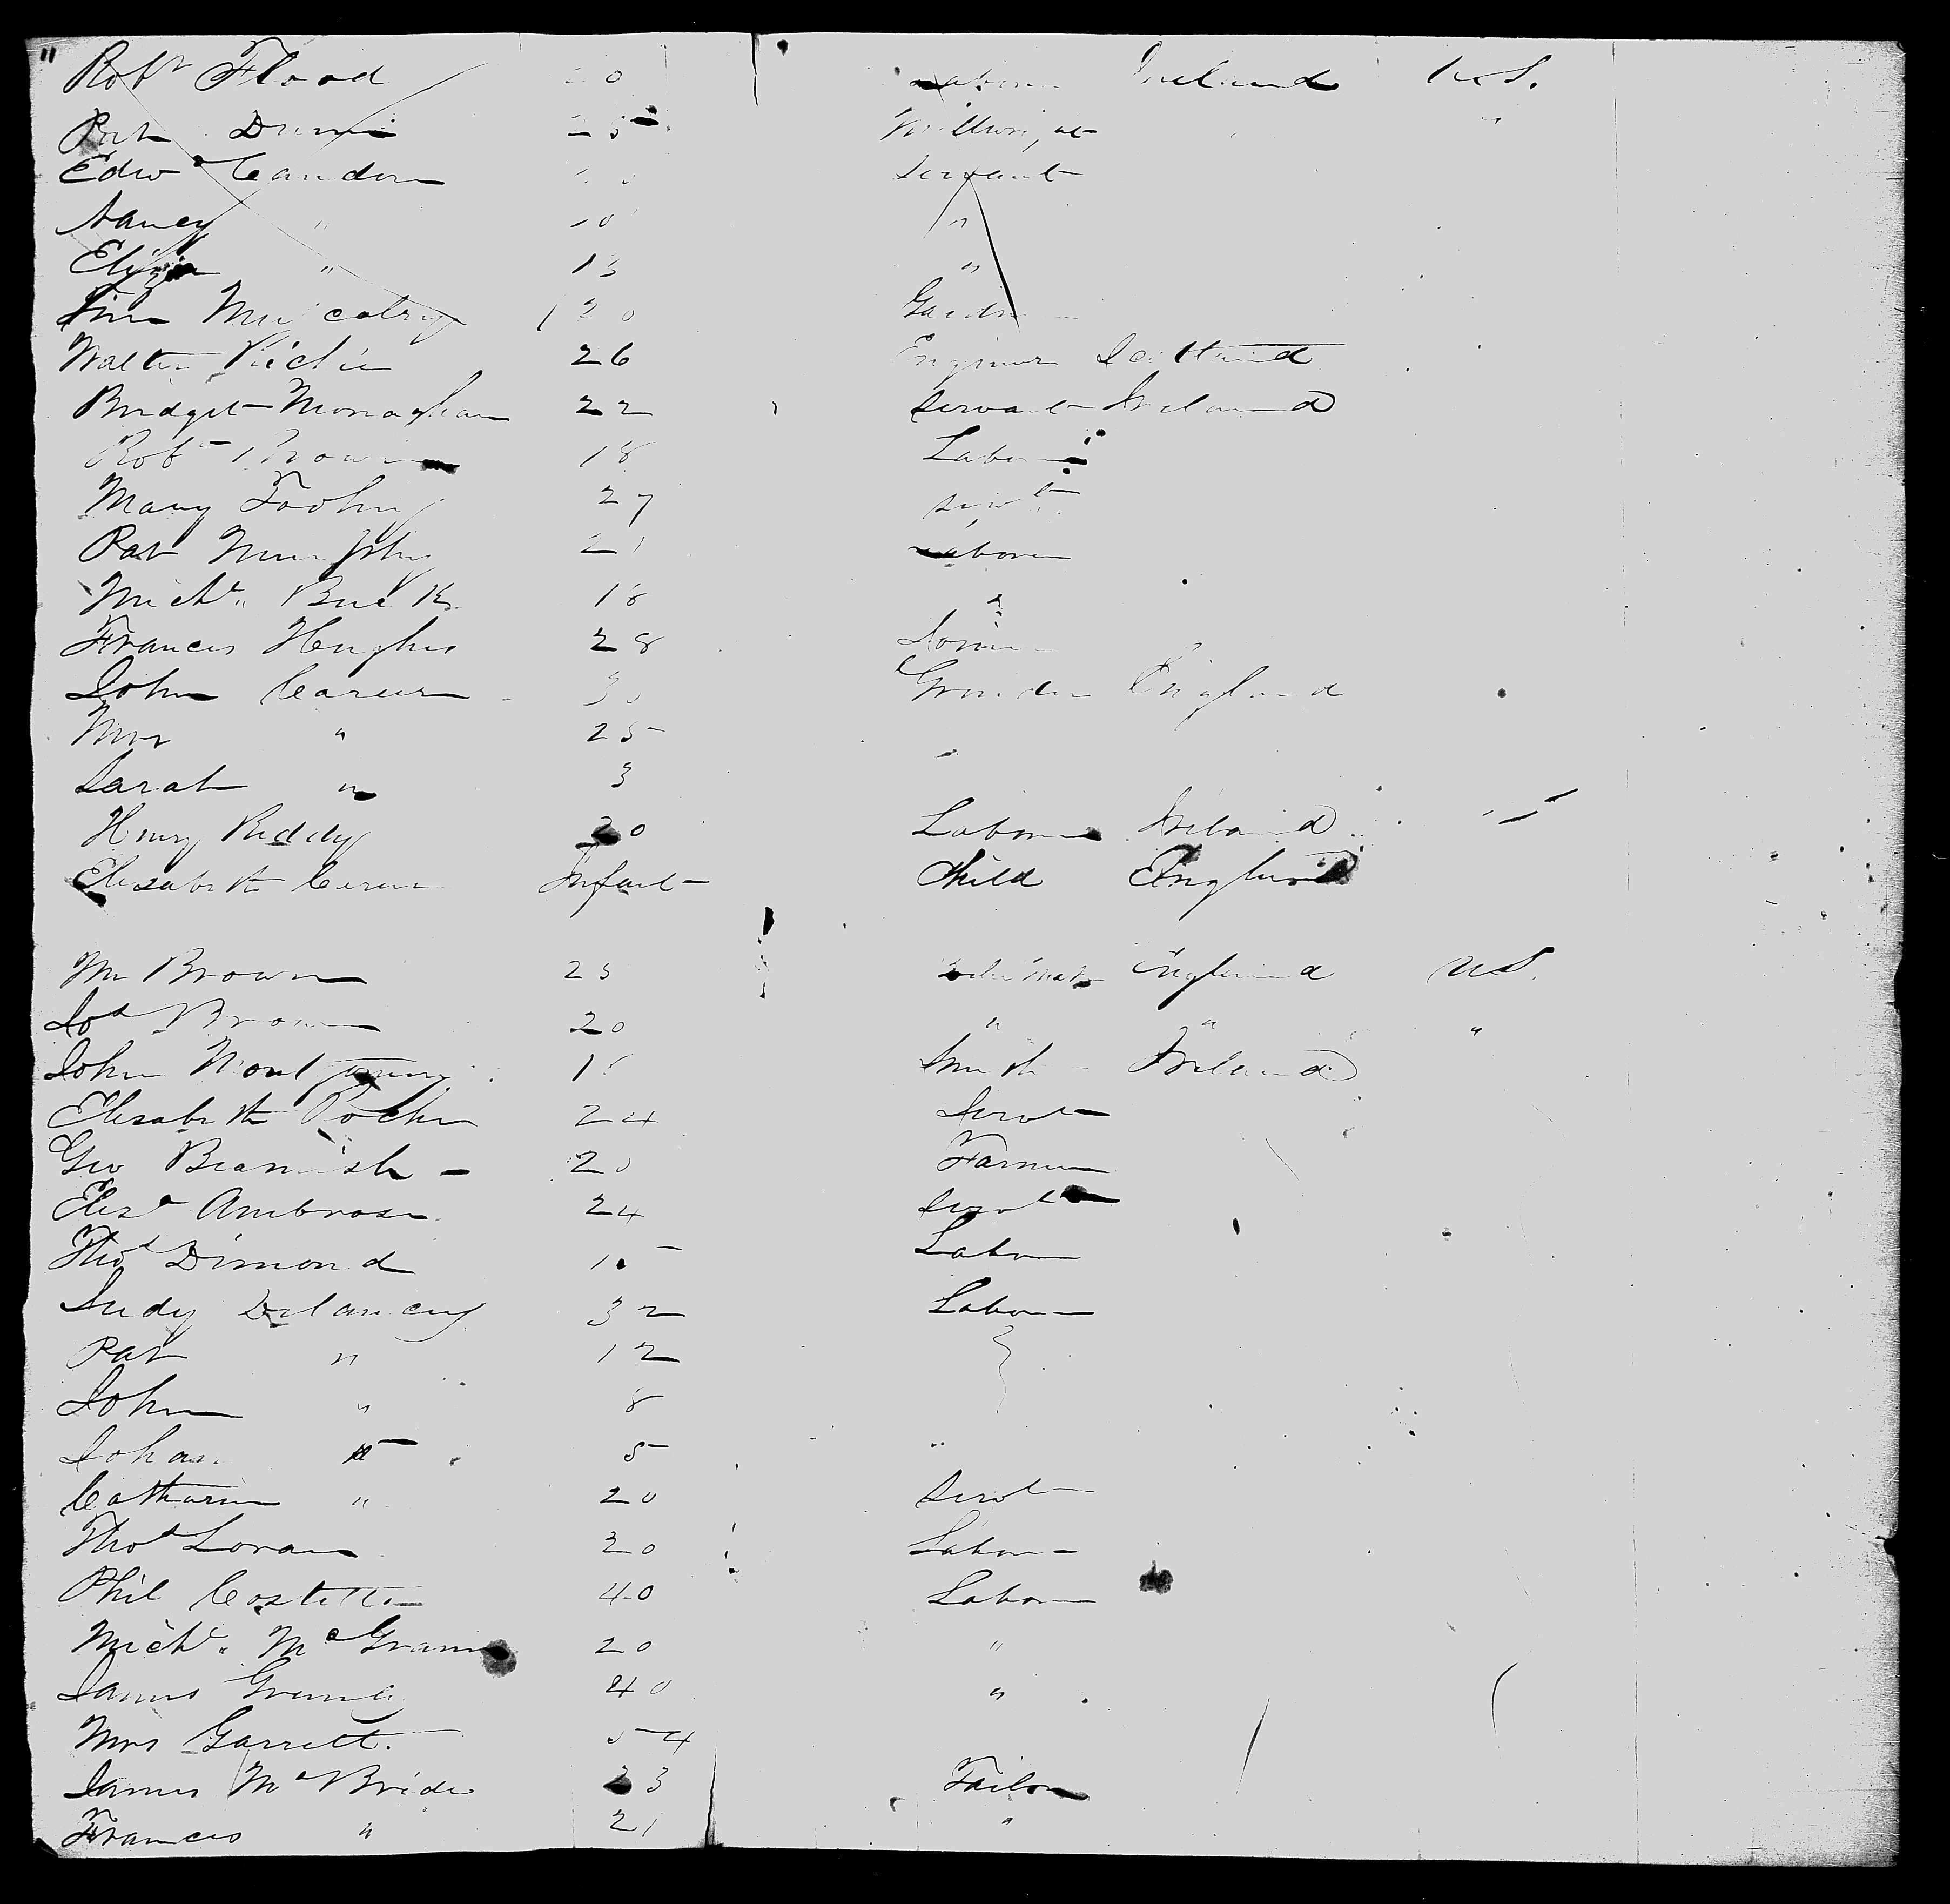 " Robt Flood 20 Labor Ireland U.S.
Pat Dunn 25 "
Edwd Candon Servant
Nancy " 10 "
Eliza " 13 "
20 Gardn
Walter Richie 26 Engineer Scotland
Bridget Monaghan 22 Servant Ireland
Robt Brown 18 Labor
Mary Toohy 27 Servt
Pat Murphy 21 Laborer
Michl Buck 18 "
Frances Hughes 28
John Carew 30 Grinder England
Mrs " 25 "
Sarah " 3
Henry Reddy 20 Labor Ireland "
Elizabeth Carew Infant Child England
Mr Brown 25 England U.S.
Jos Brown 20 " " "
John Montgomery Smith Ireland
Elizabeth Roche 24 Servt
Geo Beamish 20 Farmer
Elizh Ambrose 24 Servt
Thos Dimond Labor
Judy Delancey 32 Labor
Pat " 12
John " 8
Johan " 5 "
Catharine " 20 Servt
Thos Loran 20 Labor
Phil Costello 40 Labor
Michl McGrann 20 "
James 40 "
Mrs Garrett. 54
James McBride 23 Tailor
Frances " 21 "